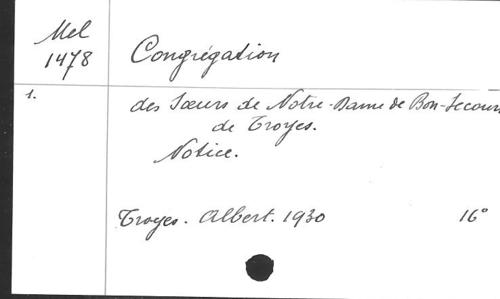 Mel
1478
Congrégation
1.
des Sœurs de Notre-Dame de Bon-Secours
de Troyes.
Notice.
Troyes. Albert. 1930 16°